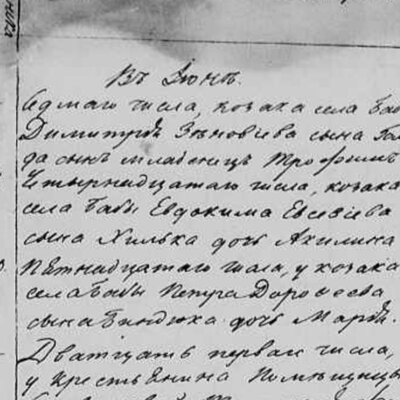 Въ Іюнѣ.
Седмаго числа, козака села Баб
Димитрія Зѣновіева сына
да сынъ младенецъ Трофимъ
Четырнадцатаго числа, козака
села Бабы Евдокима Евсевіева
сына Хилька дочь Акилина
Пятнадцатаго числа, у козака
села Бабы Петра Дорофеева
сына Биндюка дочь Марія.
Дватцать перваго числа,
у крестьянина Помѣщицы